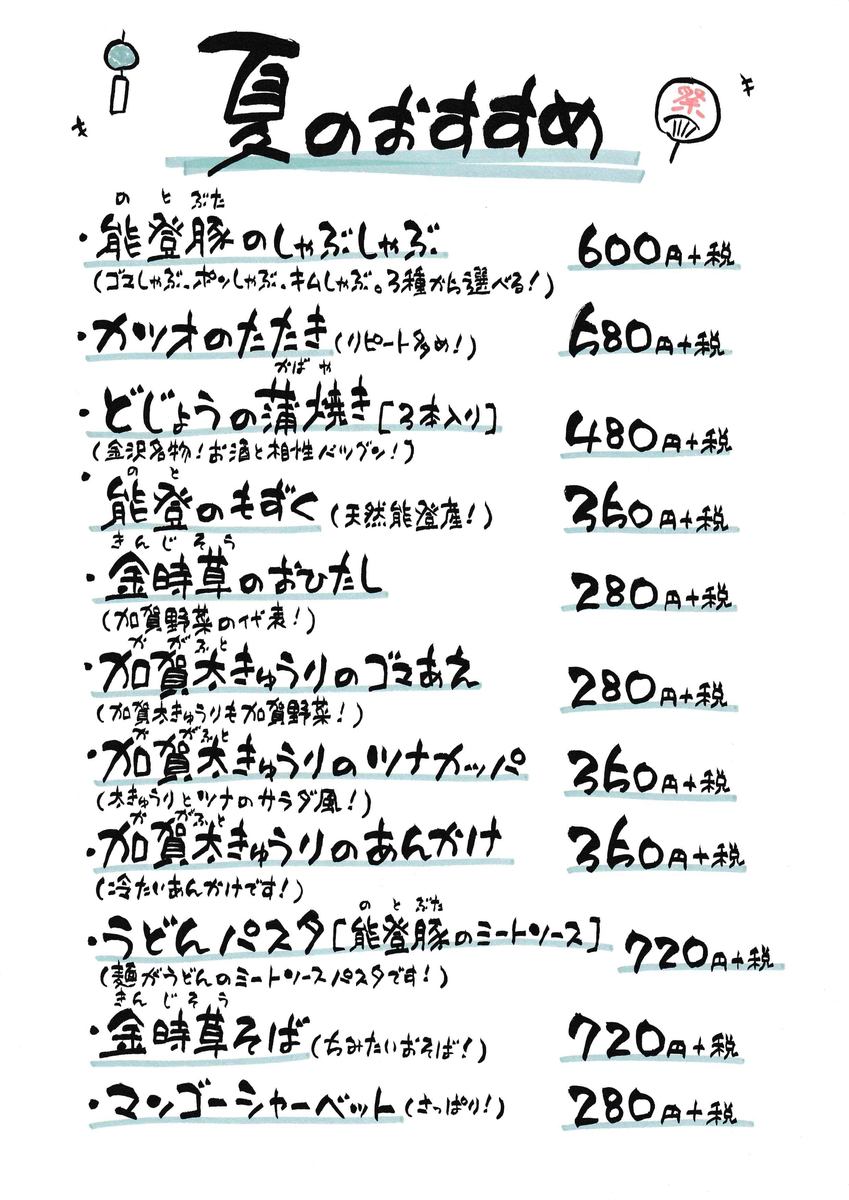 夏のおすすめ
祭
のとぶた
・能登豚のしゃぶしゃぶ 600円+税
(ゴマしゃぶ、ポンしゃぶ、キムしゃぶ。3種から選べる!)
・カツオのたたき(リピート多め!) 580円+税
かばや
・どじょうの蒲焼き[3本入り] 480円+税
(金沢名物!お酒と相性バツグン!)
のと
・能登のもずく(天然能登産!) 350円+税
きんじそう
・金時草のおひたし 280円+税
(加賀野菜の代表!)
かがふと
・加賀太きゅうりのゴマあえ 280円+税
(加賀太きゅうりも加賀野菜!)
かがふと
・加賀太きゅうりのツナカッパ 350円+税
(太きゅうりとツナのサラダ風!)
かがふと
・加賀太きゅうりのあんかけ 350円+税
(冷たいあんかけです!)
のとぶた
・うどんパスタ[能登豚のミートソース] 720円+税
(麺がうどんのミートソースパスタです!)
きんじそう
・金時草そば(つめたいおそば!) 720円+税
・マンゴーシャーベット(さっぱり!) 280円+税